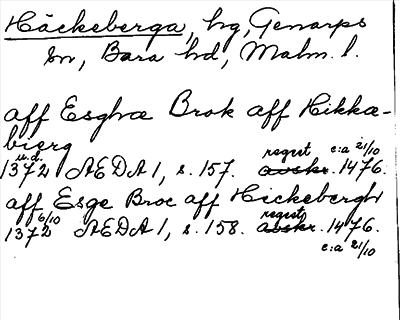 Häckeberga, hg, Genarps
sn, Bara hd, Malm. l.
aff Esghæ Brok aff Hikkæ-
bierg
u.d. regest c:a 21/10
1372 ÆDA 1, s. 157. avskr. 1476.
aff Esge Broc aff Hickebergh
6/10 regest
1372 ÆDA 1, s. 158. avskr. 1476.
c:a 21/10